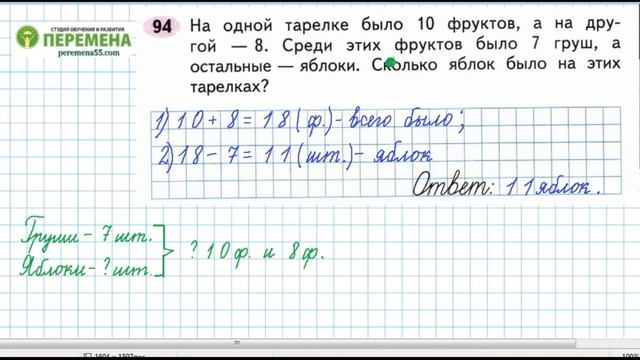 СТУДИЯ ОБУЧЕНИЯ И РАЗВИТИЯ
ПЕРЕМЕНА
peremena55.com
94 На одной тарелке было 10 фруктов, а на дру-
гой — 8. Среди этих фруктов было 7 груш, а
остальные — яблоки. Сколько яблок было на этих
тарелках?
1) 10 + 8 = 18 (ф.) - всего было;
2) 18 - 7 = 11 (шт.) - яблок
Ответ: 11 яблок.
Груши - 7 шт.
Яблоки - ? шт. } ? 10 ф. и 8 ф.